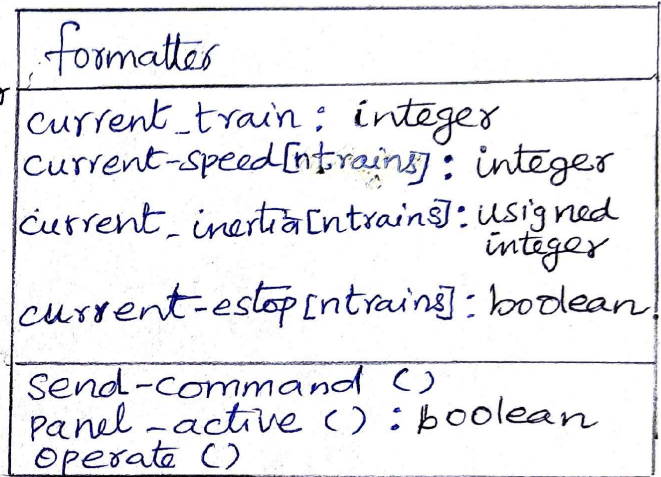 formatter
current_train : integer
current-speed[ntrains] : integer
current_inertia[ntrains] : usigned
integer
current-estop[ntrains] : boolean
send-command ()
panel-active () : boolean
operate ()